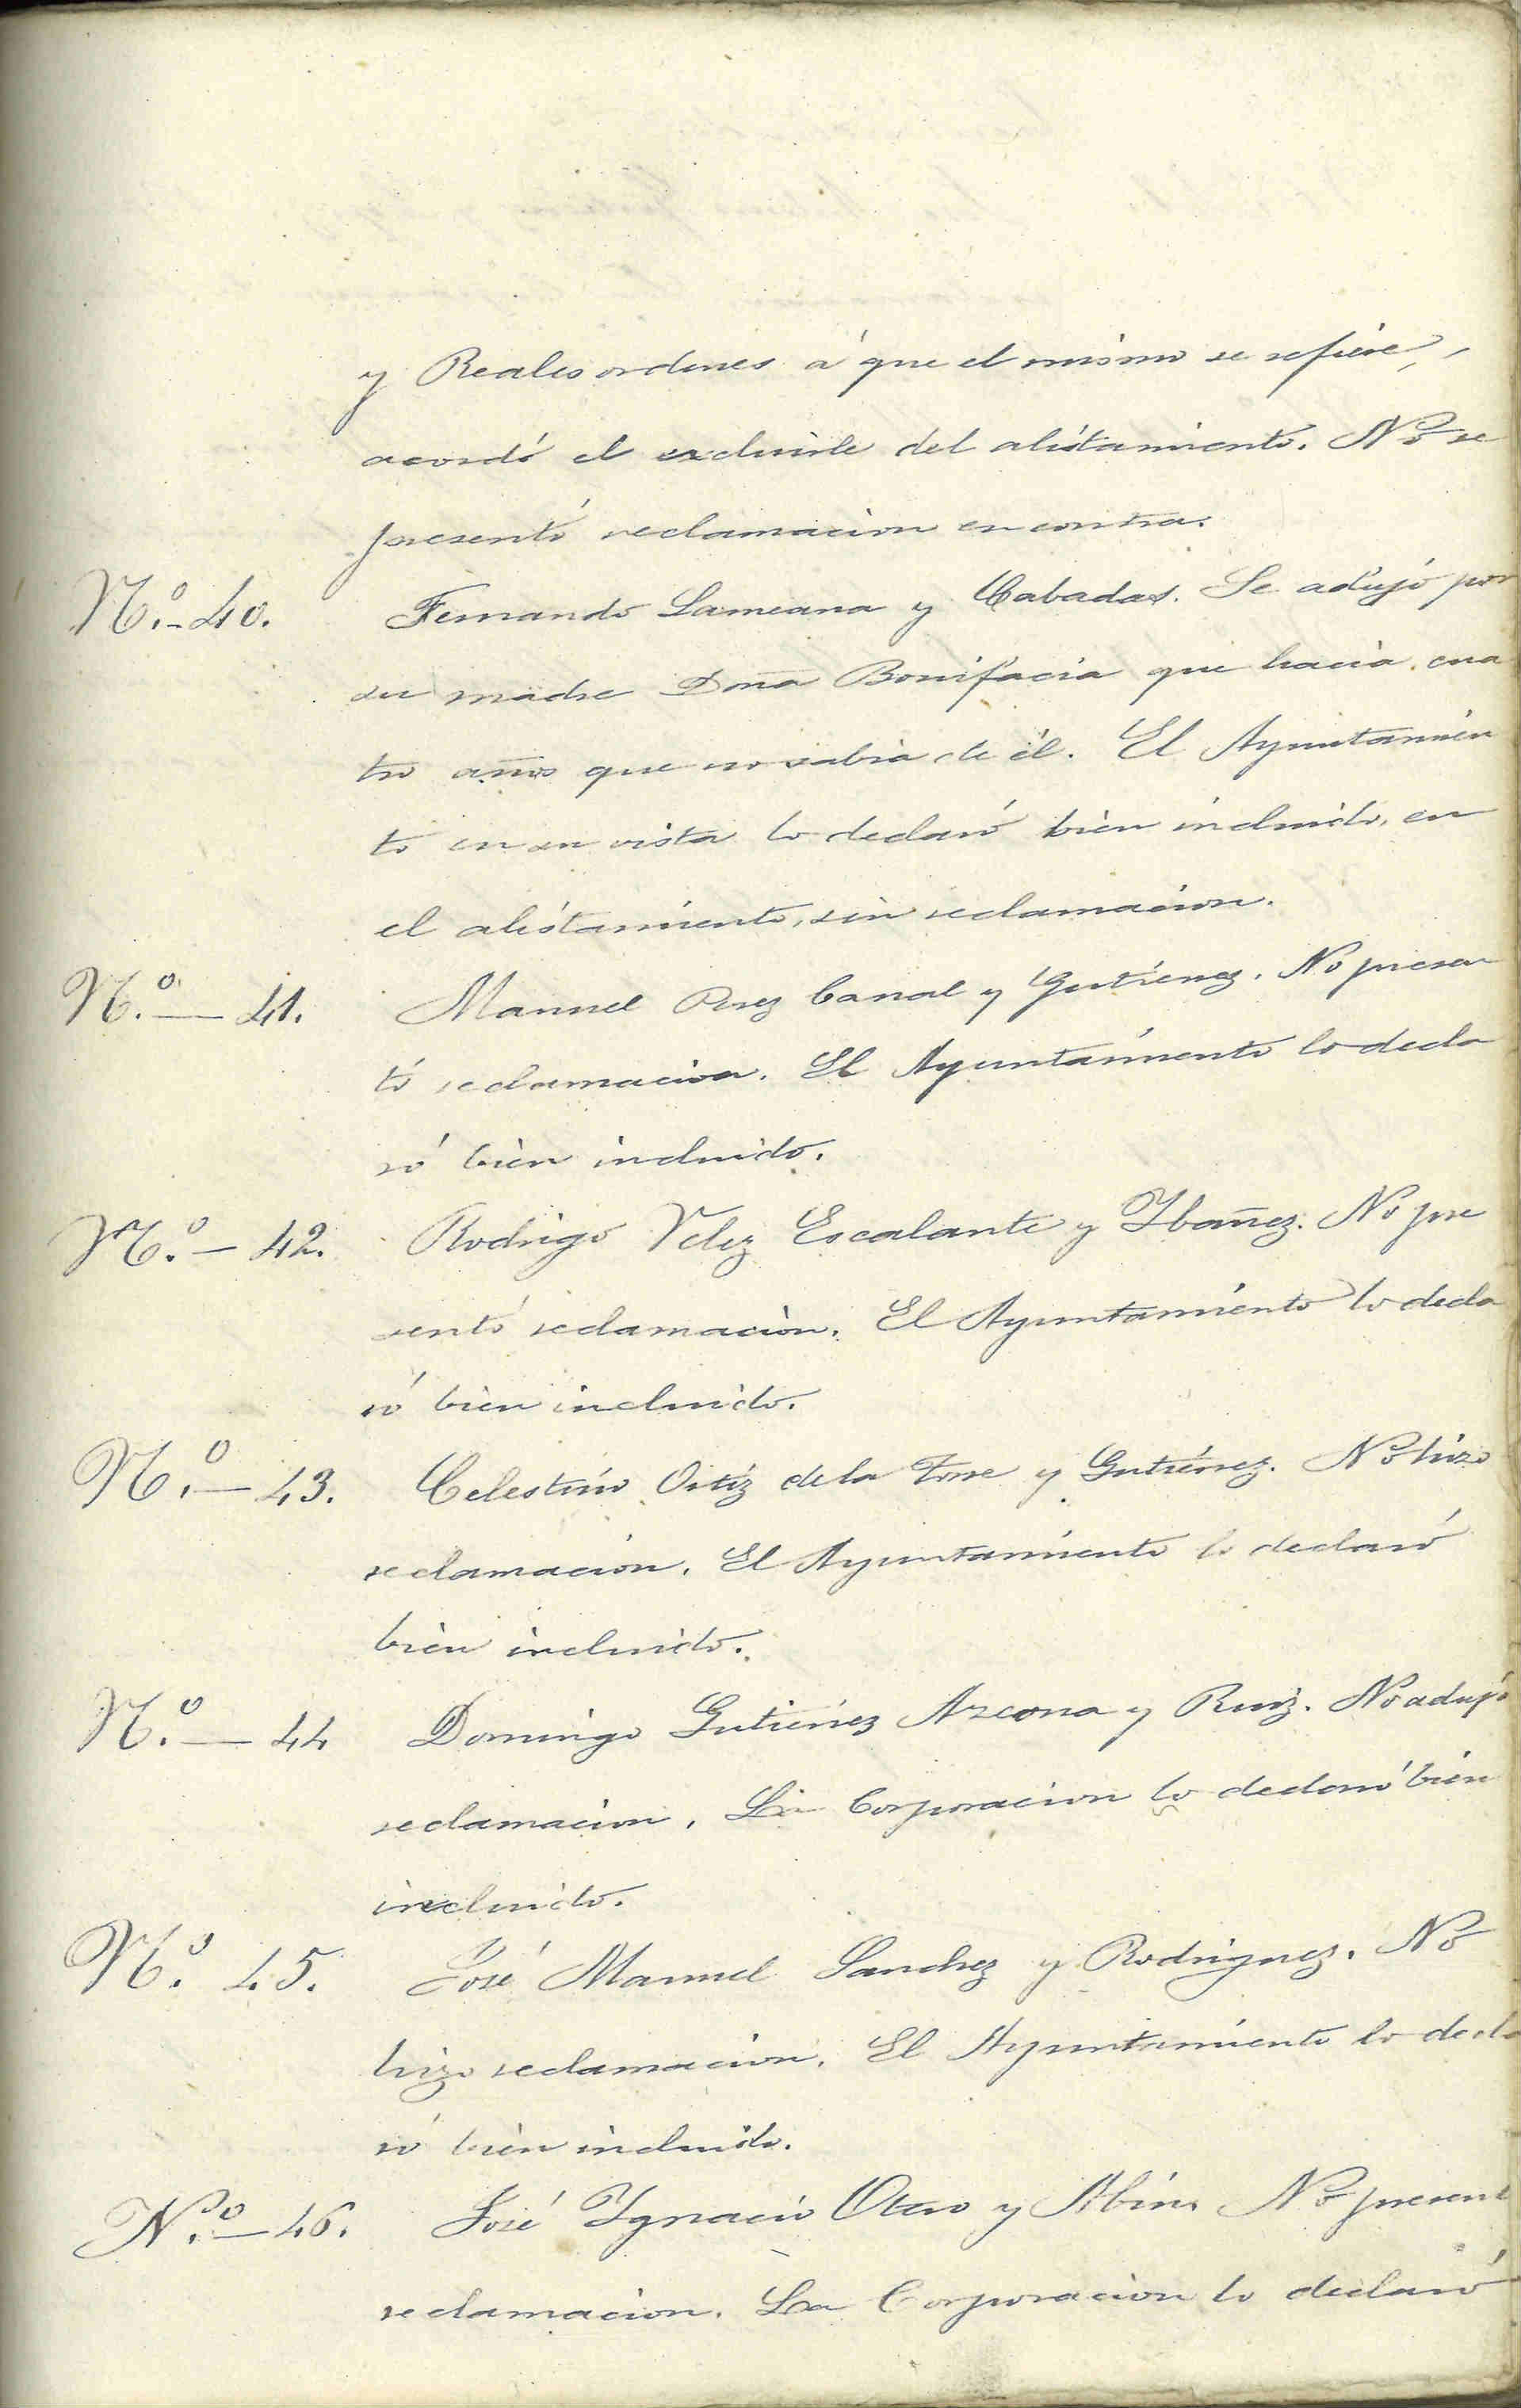 y Reales ordenes á que el mismo se refiere,
acordó el excluirle del alistamiento. No se
presentó reclamacion en contra.
N.º - 40. Fernando Lameana y Cabadas. Se adujó por
su madre Doña Bonifacia que hacia cua
tro años que no sabia de él. El Ayuntamien
to en su vista lo declaró bien incluido, en
el alistamiento, sin reclamacion.
N.º — 41. Manuel Perez Canal y Gutierrez. No presen
tó reclamacion. El Ayuntamiento lo decla
ró bien incluido.
N.º — 42. Rodrigo Velez Escalante y Ybañez. No pre
sentó reclamacion. El Ayuntamiento lo decla
ró bien incluido.
N.º — 43. Celestino Ortiz de la Torre y Gutiérrez. No hizo
reclamacion. El Ayuntamiento lo declaró
bien incluido.
N.º — 44 Domingo Gutierrez Arcona y Ruiz. No adujó
reclamacion. La Corporacion lo declaró bien
incluido.
N.º 45. José Manuel Sanchez y Rodriguez. No
hizo reclamacion. El Ayuntamiento lo decla
ró bien incluido.
N.º — 46. José Ygnacio Otero y Albin No present
reclamacion. La Corporacion lo declaró